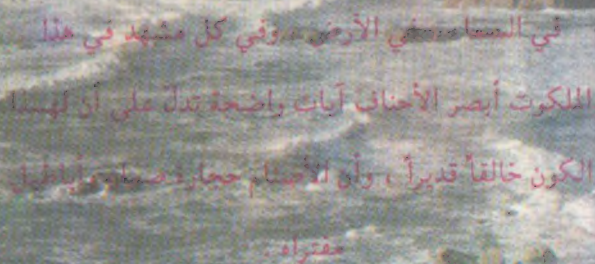 في السماء .. في الأرض .. وفي كل مشهد في هذا
الملكوت أبصر الأحناف آيات واضحة تدل على أن لهذا
الكون خالقاً قديراً ، وأن الأصنام حجارة صماء وأباطيل
مفتراه .